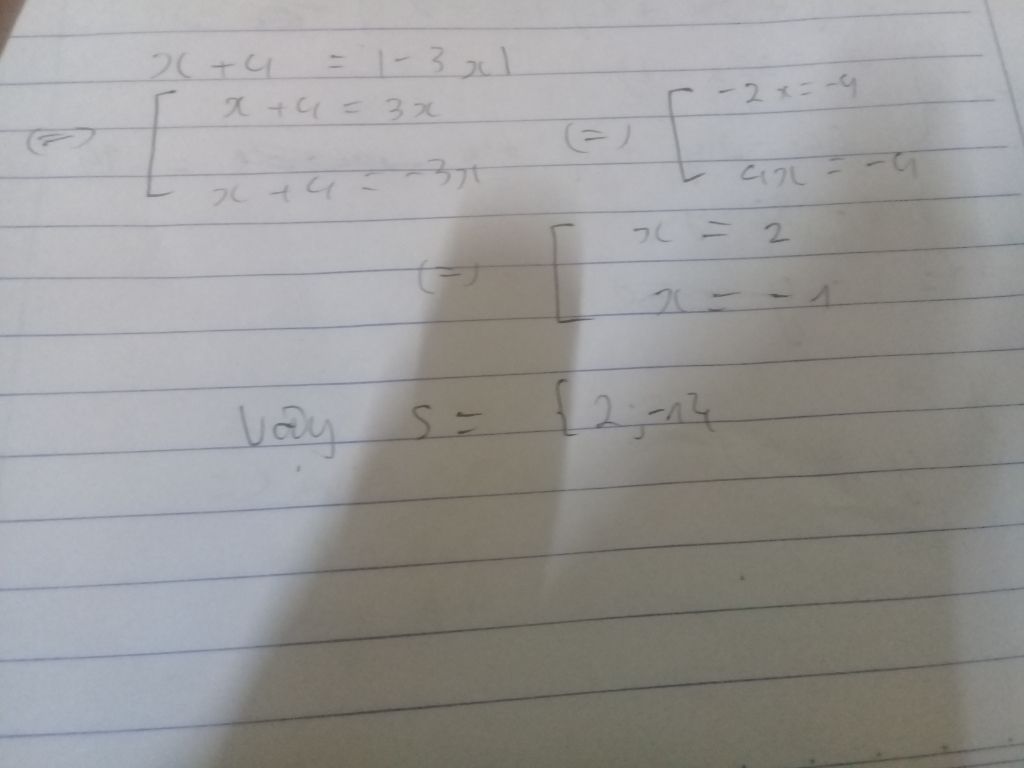 x + 4 = |-3x|
(=) [ x + 4 = 3x (=) [ -2x = -4
x + 4 = -3x 4x = -4
(=) [ x = 2
x = -1
Vậy S = {2; -1}